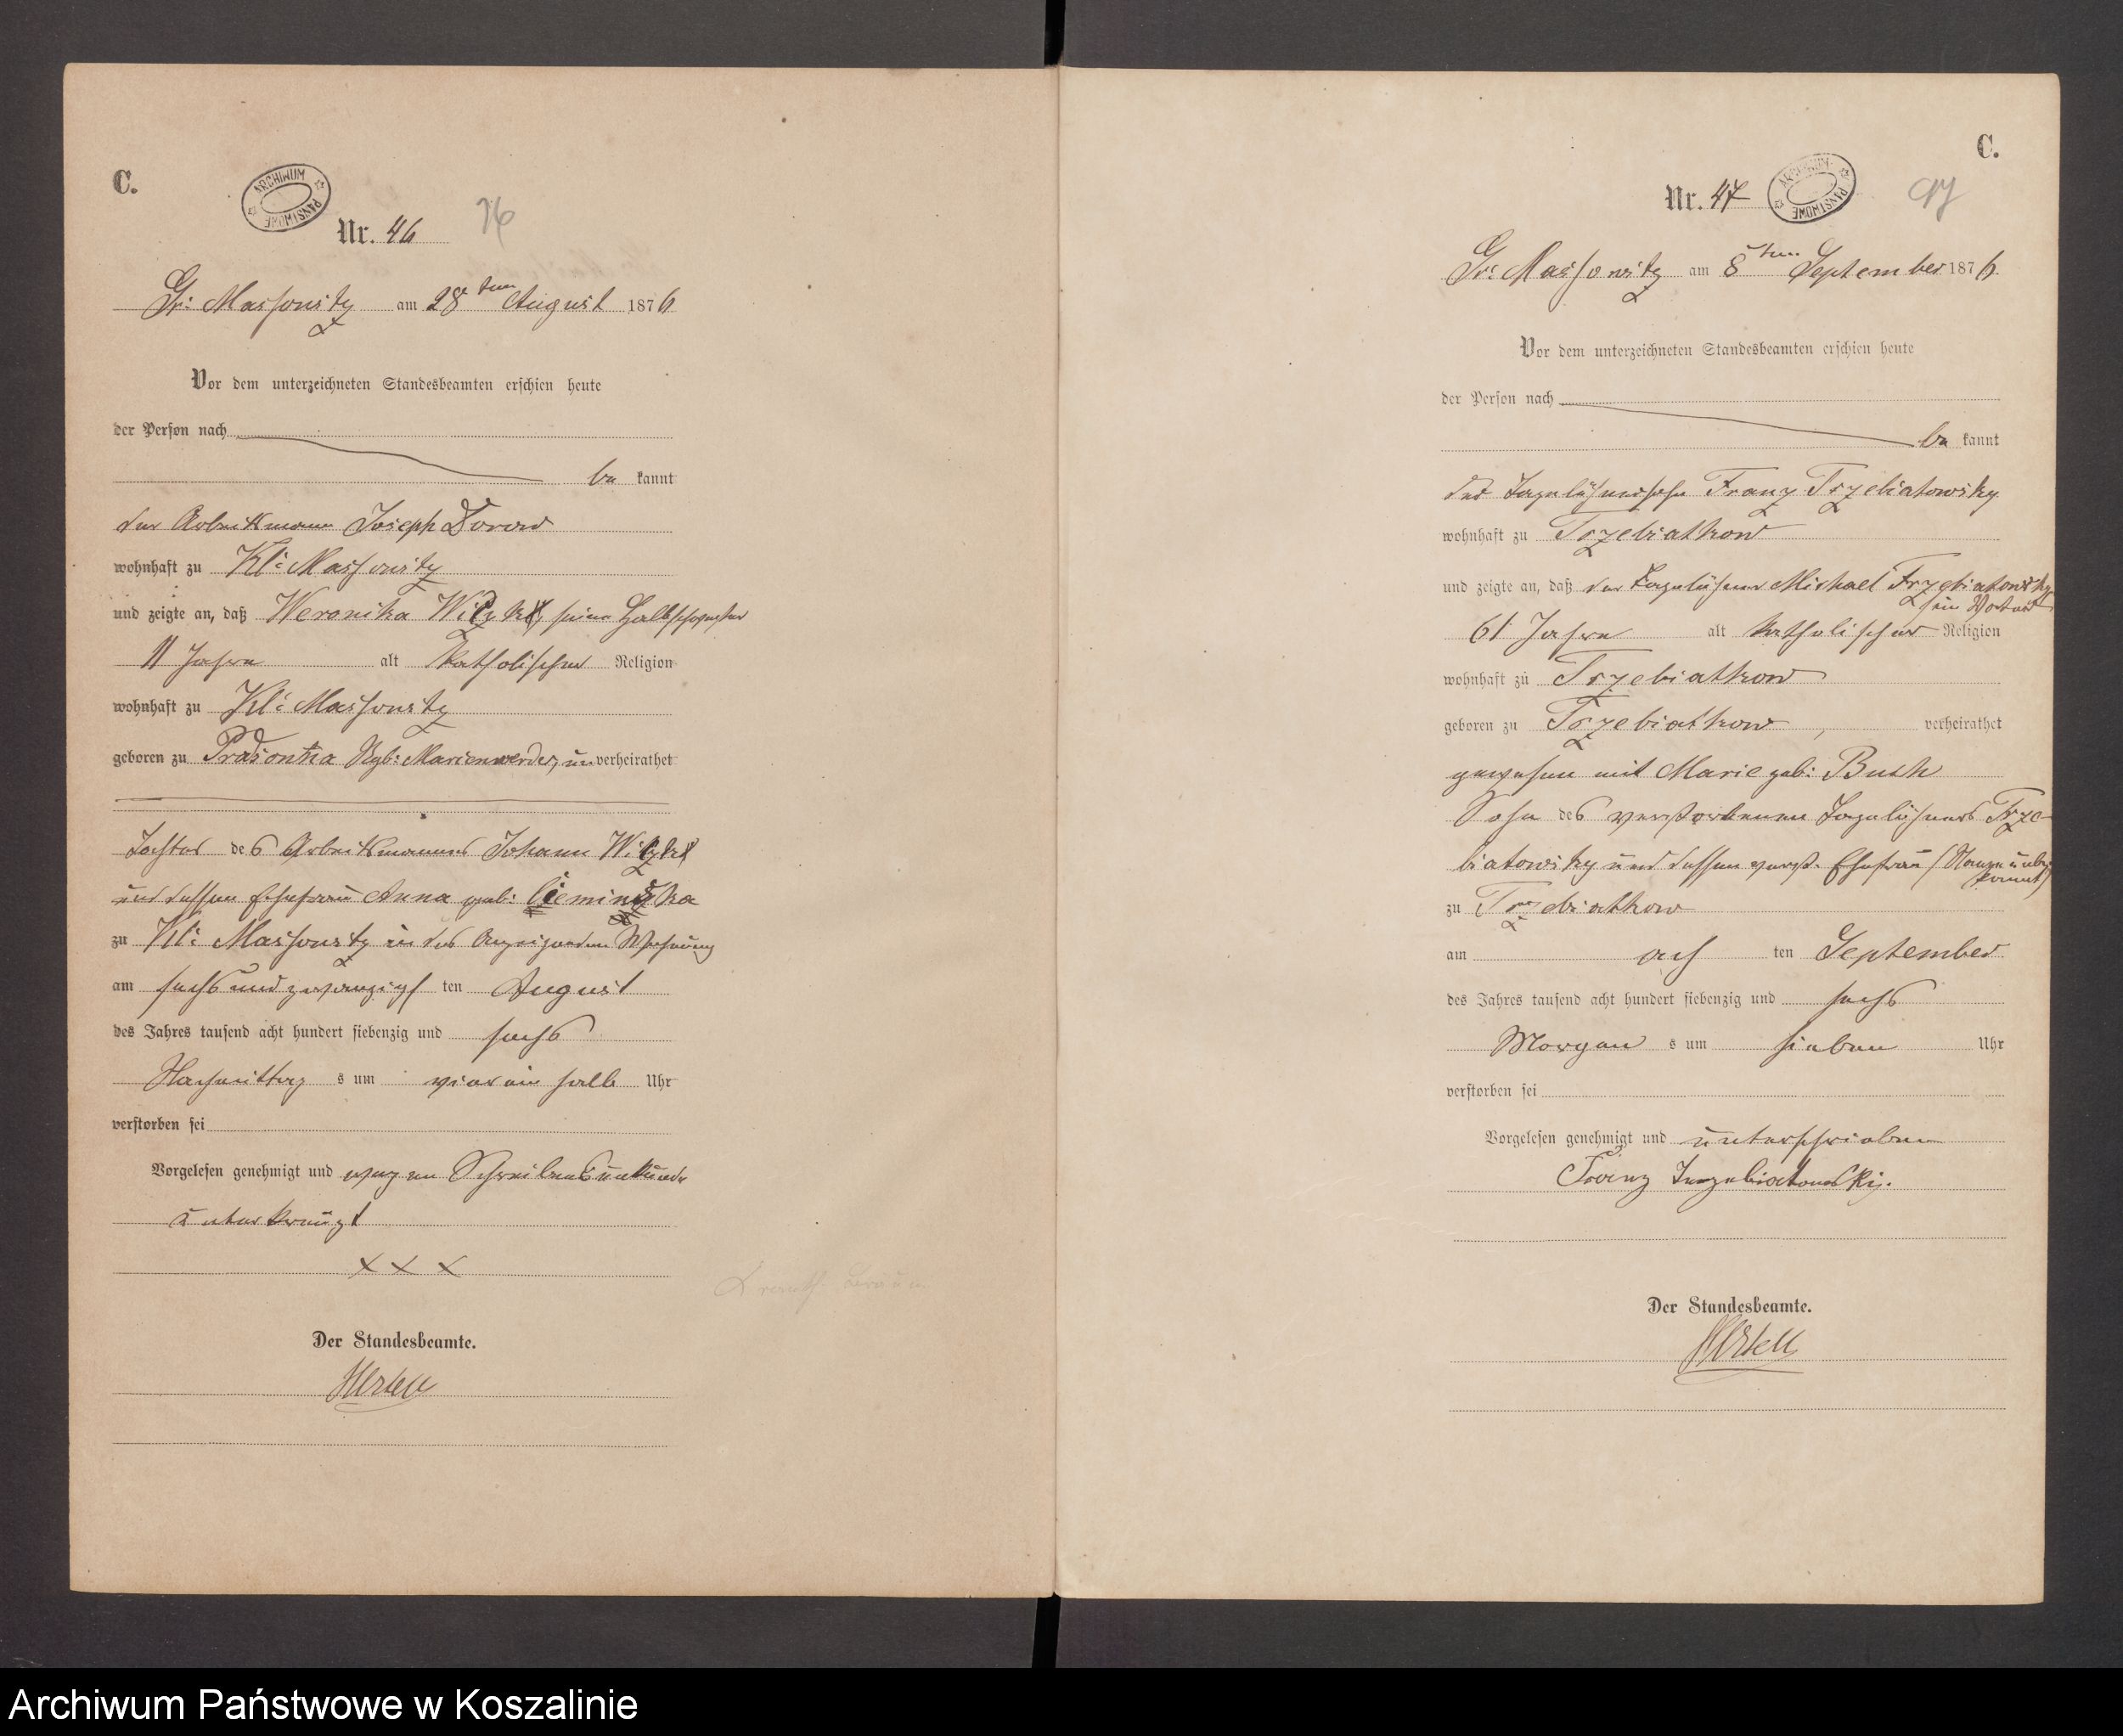 C.
ARCHIWUM PAŃSTWOWE
Nr. 46
Gr: Massowitz am 28ten August 1876
Vor dem unterzeichneten Standesbeamten erschien heute
der Person nach
be kannt
der Arbeitsmann Joseph Dorow
wohnhaft zu Kl: Massowitz
und zeigte an, daß Weronika seine Halbschwester
11 Jahre alt katholischer Religion
wohnhaft zu Kl: Massowitz
geboren zu Rgb: Marienwerder, un verheirathet
Tochter des Arbeitsmannes Johann
und dessen Ehefrau Anna geb:
zu Kl: Massowitz in des Anzeigenden Wohnung
am sechsundzwanzigs ten August
des Jahres tausend acht hundert siebenzig und sechs
Nachmittag s um vierein halb Uhr
verstorben sei
Vorgelesen genehmigt und wegen Schreibensunkunde
unterkreuzt
X X X
Der Standesbeamte.
C.
Nr. 47
ARCHIWUM PAŃSTWOWE
97
Gr: Massowitz am 8ten September 1876.
Vor dem unterzeichneten Standesbeamten erschien heute
der Person nach
be kannt
der Tagelöhnersohn Franz Trzebiatowsky
wohnhaft zu Trzebiatkow
und zeigte an, daß der Tagelöhner Michael Trzebiatowsky
sein Vater
61 Jahre alt katholischer Religion
wohnhaft zu Trzebiatkow
geboren zu Trzebiatkow, verheirathet
gewesen mit Marie geb:
Sohn des verstorbenen Tagelöhners Trze-
biatowsky und dessen verst. Ehefrau (Name unbe
kannt)
zu Trzebiatkow
am ach ten September
des Jahres tausend acht hundert siebenzig und sechs
Morgen s um sieben Uhr
verstorben sei
Vorgelesen genehmigt und unterschrieben
Franz
Der Standesbeamte.
Archiwum Państwowe w Koszalinie